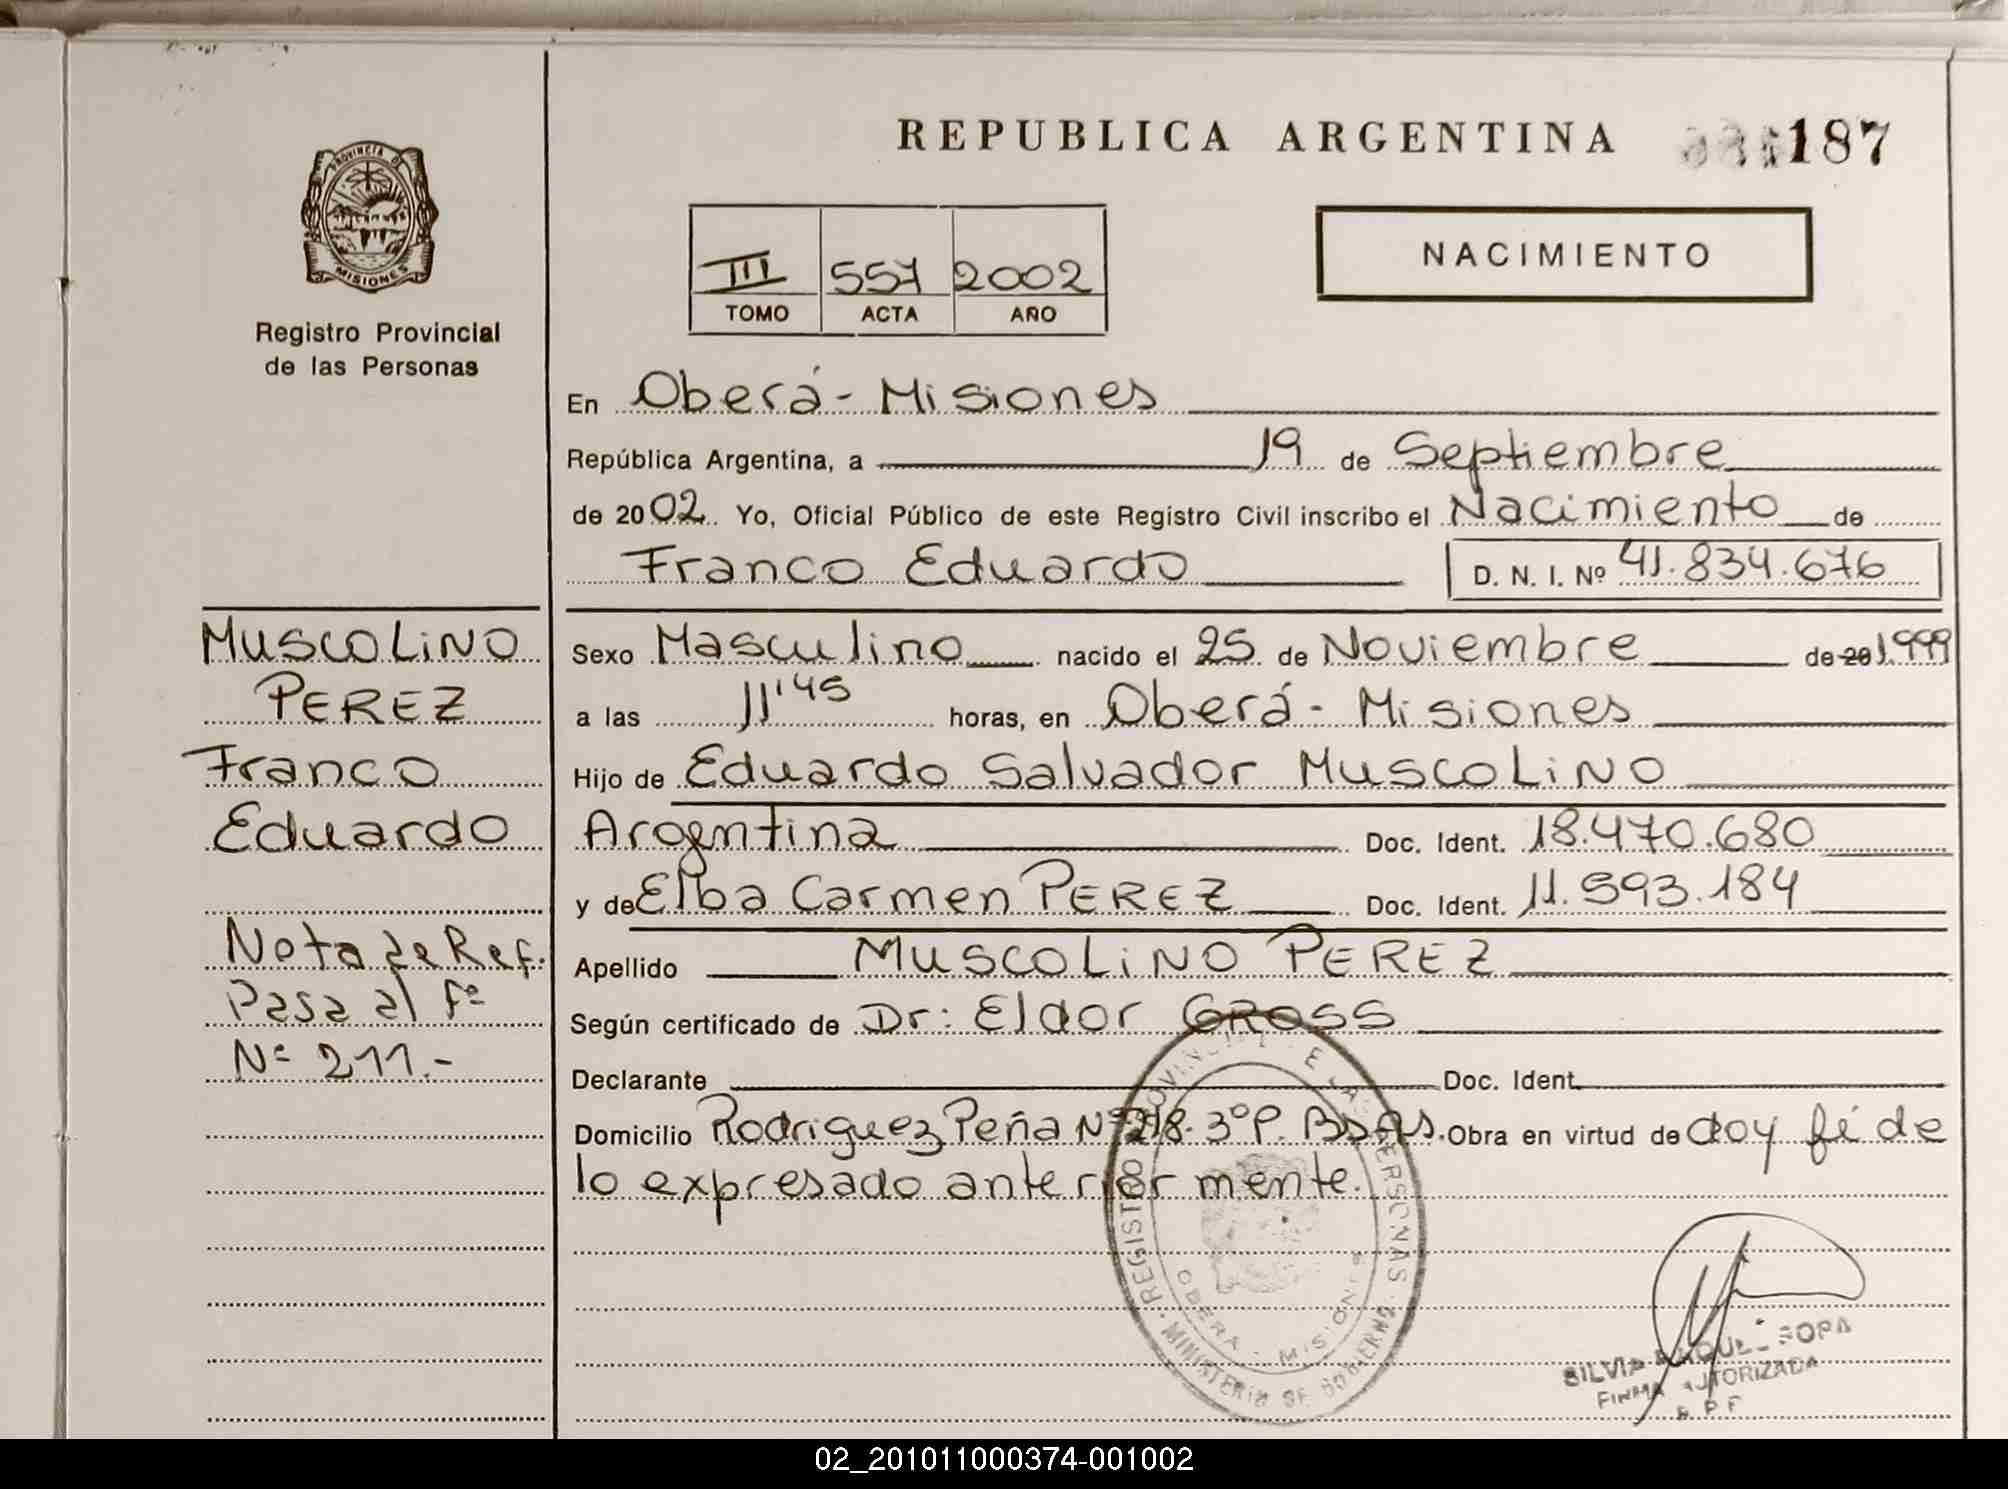 REPUBLICA ARGENTINA
187
PROVINCIA DE
MISIONES
Registro Provincial
de las Personas
III 557 2002
TOMO ACTA AÑO
NACIMIENTO
En Oberá - Misiones
República Argentina, a 19 de Septiembre
de 2002. Yo, Oficial Público de este Registro Civil inscribo el Nacimiento de
Franco Eduardo D. N. I. Nº 41.834.676
MUSCOLiNO
PEREZ
Franco
Eduardo
Nota de Ref.
Pasa al Fº
Nº 211.-
Sexo Masculino nacido el 25 de Noviembre de 20 1.999
a las 11'45 horas, en Oberá - Misiones
Hijo de Eduardo Salvador MUSCOLiNO
Argentina Doc. Ident. 18.470.680
y de Elba Carmen PEREZ Doc. Ident. 11.593.184
Apellido MUSCOLiNO PEREZ
Según certificado de Dr: Eldor GROSS
Declarante Doc. Ident.
Domicilio Rodriguez Peña Nº 218. 3º P. Bs As. Obra en virtud de doy fé de
lo expresado anteriormente.
REGISTRO PROVINCIAL DE LAS PERSONAS
OBERA - MISIONES
MINISTERIO DE GOBIERNO
SILVIA RAQUEL SOPA
FIRMA AUTORIZADA
02_201011000374-001002